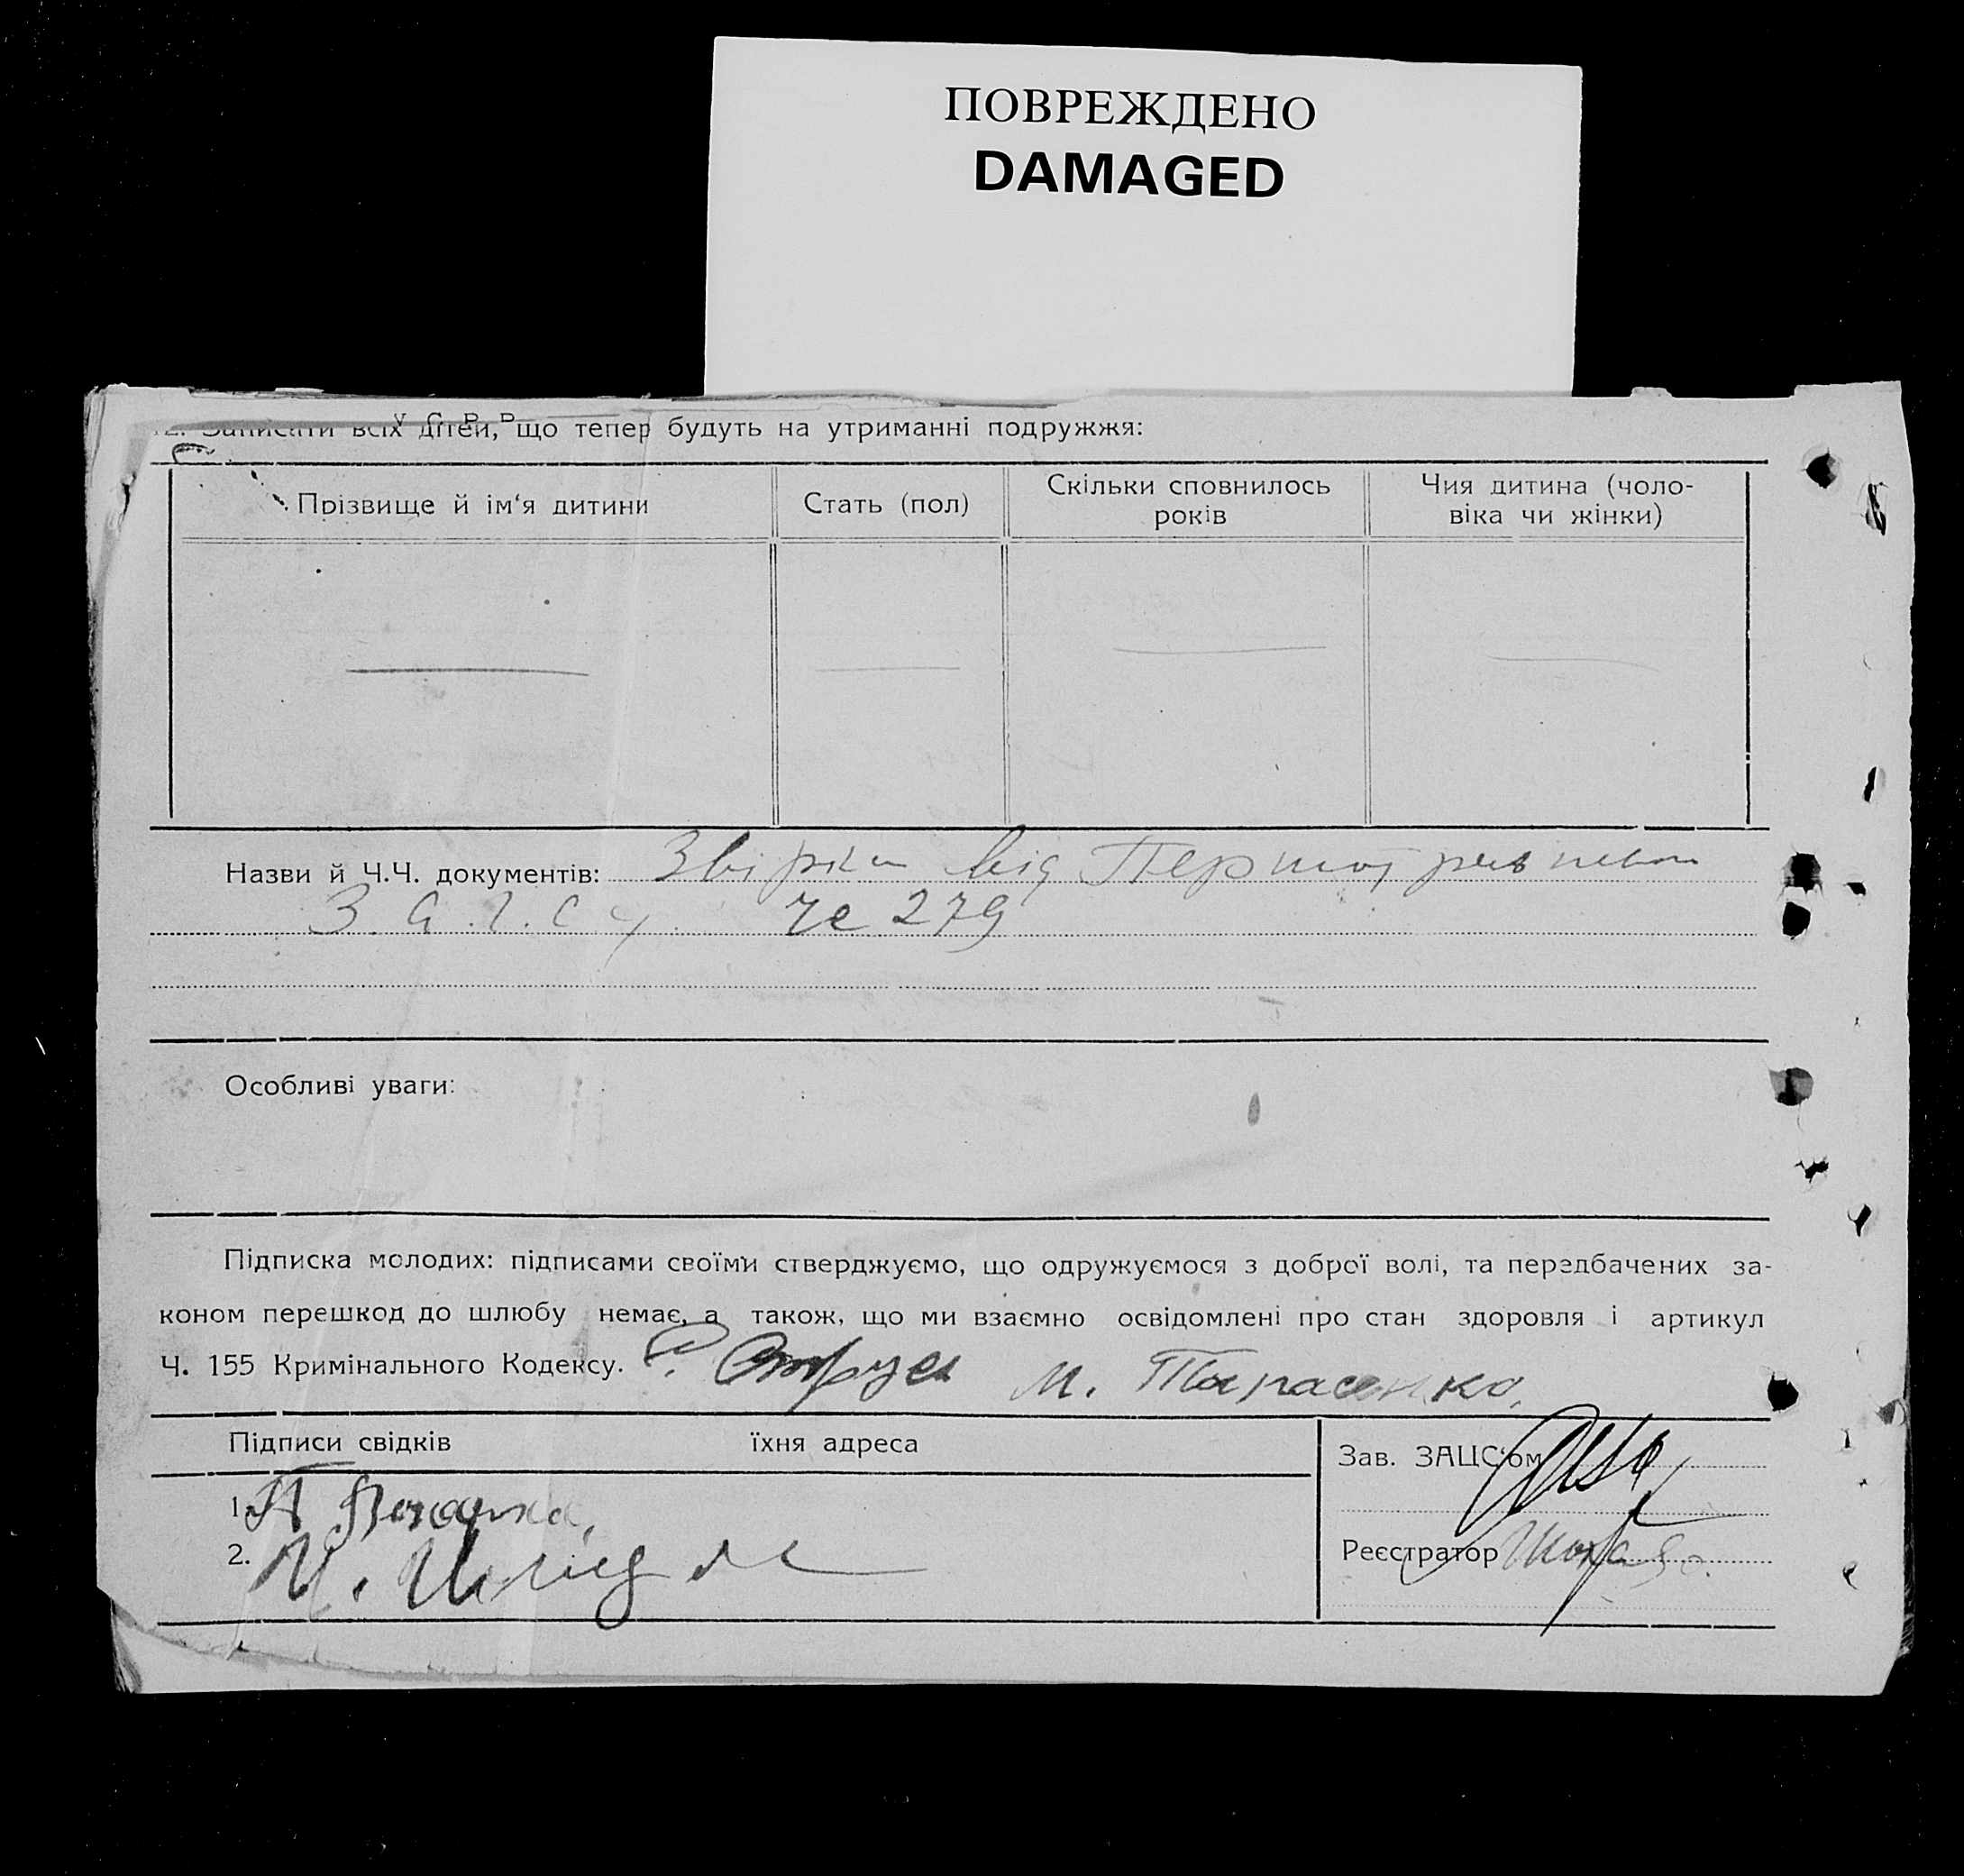 ПОВРЕЖДЕНО
DAMAGED
У. С. Р. Р.
12. Записати всіх дітей, що тепер будуть на утриманні подружжя:
Прізвище й ім'я дитини
Стать (пол)
Скільки сповнилось років
Чия дитина (чоловіка чи жінки)
Назви й Ч.Ч. документів: від
З.А.Г.С у 279
Особливі уваги:
Підписка молодих: підписами своїми стверджуємо, що одружуємося з доброї волі, та передбачених за-
коном перешкод до шлюбу немає, а також, що ми взаємно освідомлені про стан здоровля і артикул
Ч. 155 Кримінального Кодексу. М. Тарасенко,
Підписи свідків їхня адреса
Зав. ЗАЦС'ом
1.
2.
Реєстратор